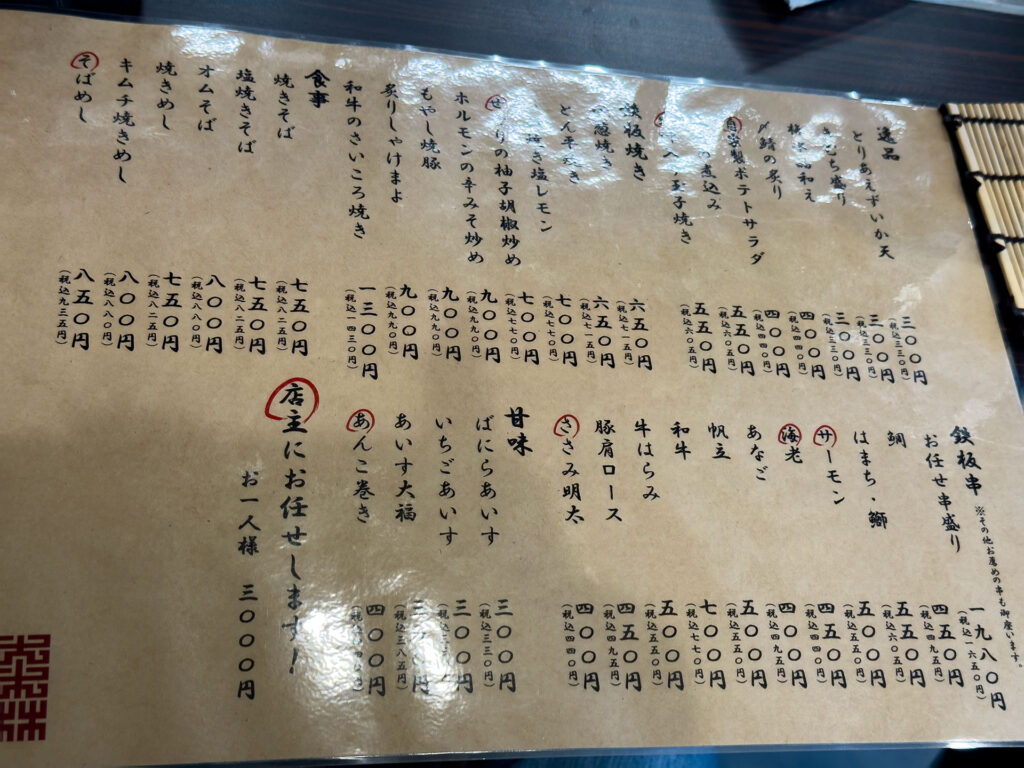 逸品
とりあえずいか天 三〇〇円
(税込三三〇円)
きむち盛り 三〇〇円
(税込三三〇円)
和え 三〇〇円
(税込三三〇円)
〆鯖の炙り 四〇〇円
(税込四四〇円)
自家製ポテトサラダ 四〇〇円
(税込四四〇円)
煮込み 五五〇円
(税込六〇五円)
玉子焼き 五五〇円
(税込六〇五円)
鉄板焼き
葱焼き 六五〇円
(税込七一五円)
とん平焼き 六五〇円
(税込七一五円)
焼き塩レモン 七〇〇円
(税込七七〇円)
せせりの柚子胡椒炒め 七〇〇円
(税込七七〇円)
ホルモンの辛みそ炒め 九〇〇円
(税込九九〇円)
もやし焼豚 九〇〇円
(税込九九〇円)
炙りしゃけまよ 九〇〇円
(税込九九〇円)
和牛のさいころ焼き 一三〇〇円
(税込一四三〇円)
食事
焼きそば 七五〇円
(税込八二五円)
塩焼きそば 七五〇円
(税込八二五円)
オムそば 八〇〇円
(税込八八〇円)
焼きめし 七五〇円
(税込八二五円)
キムチ焼きめし 八〇〇円
(税込八八〇円)
そばめし 八五〇円
(税込九三五円)
鉄板串 ※その他お薦めの串も御座います。
お任せ串盛り 一九八〇円
(税込一六五〇円)
鯛 四五〇円
(税込四九五円)
はまち・鰤 五五〇円
(税込六〇五円)
サーモン 五〇〇円
(税込五五〇円)
海老 四五〇円
(税込四九五円)
あなご 四〇〇円
(税込四四〇円)
帆立 五〇〇円
(税込五五〇円)
和牛 七〇〇円
(税込七七〇円)
牛はらみ 五〇〇円
(税込五五〇円)
豚肩ロース 四五〇円
(税込四九五円)
ささみ明太 四〇〇円
(税込四四〇円)
甘味
ばにらあいす 三〇〇円
(税込三三〇円)
いちごあいす 三〇〇円
(税込三三〇円)
あいす大福 三五〇円
(税込三八五円)
あんこ巻き 四〇〇円
(税込四四〇円)
店主にお任せします！
お一人様 三〇〇〇円